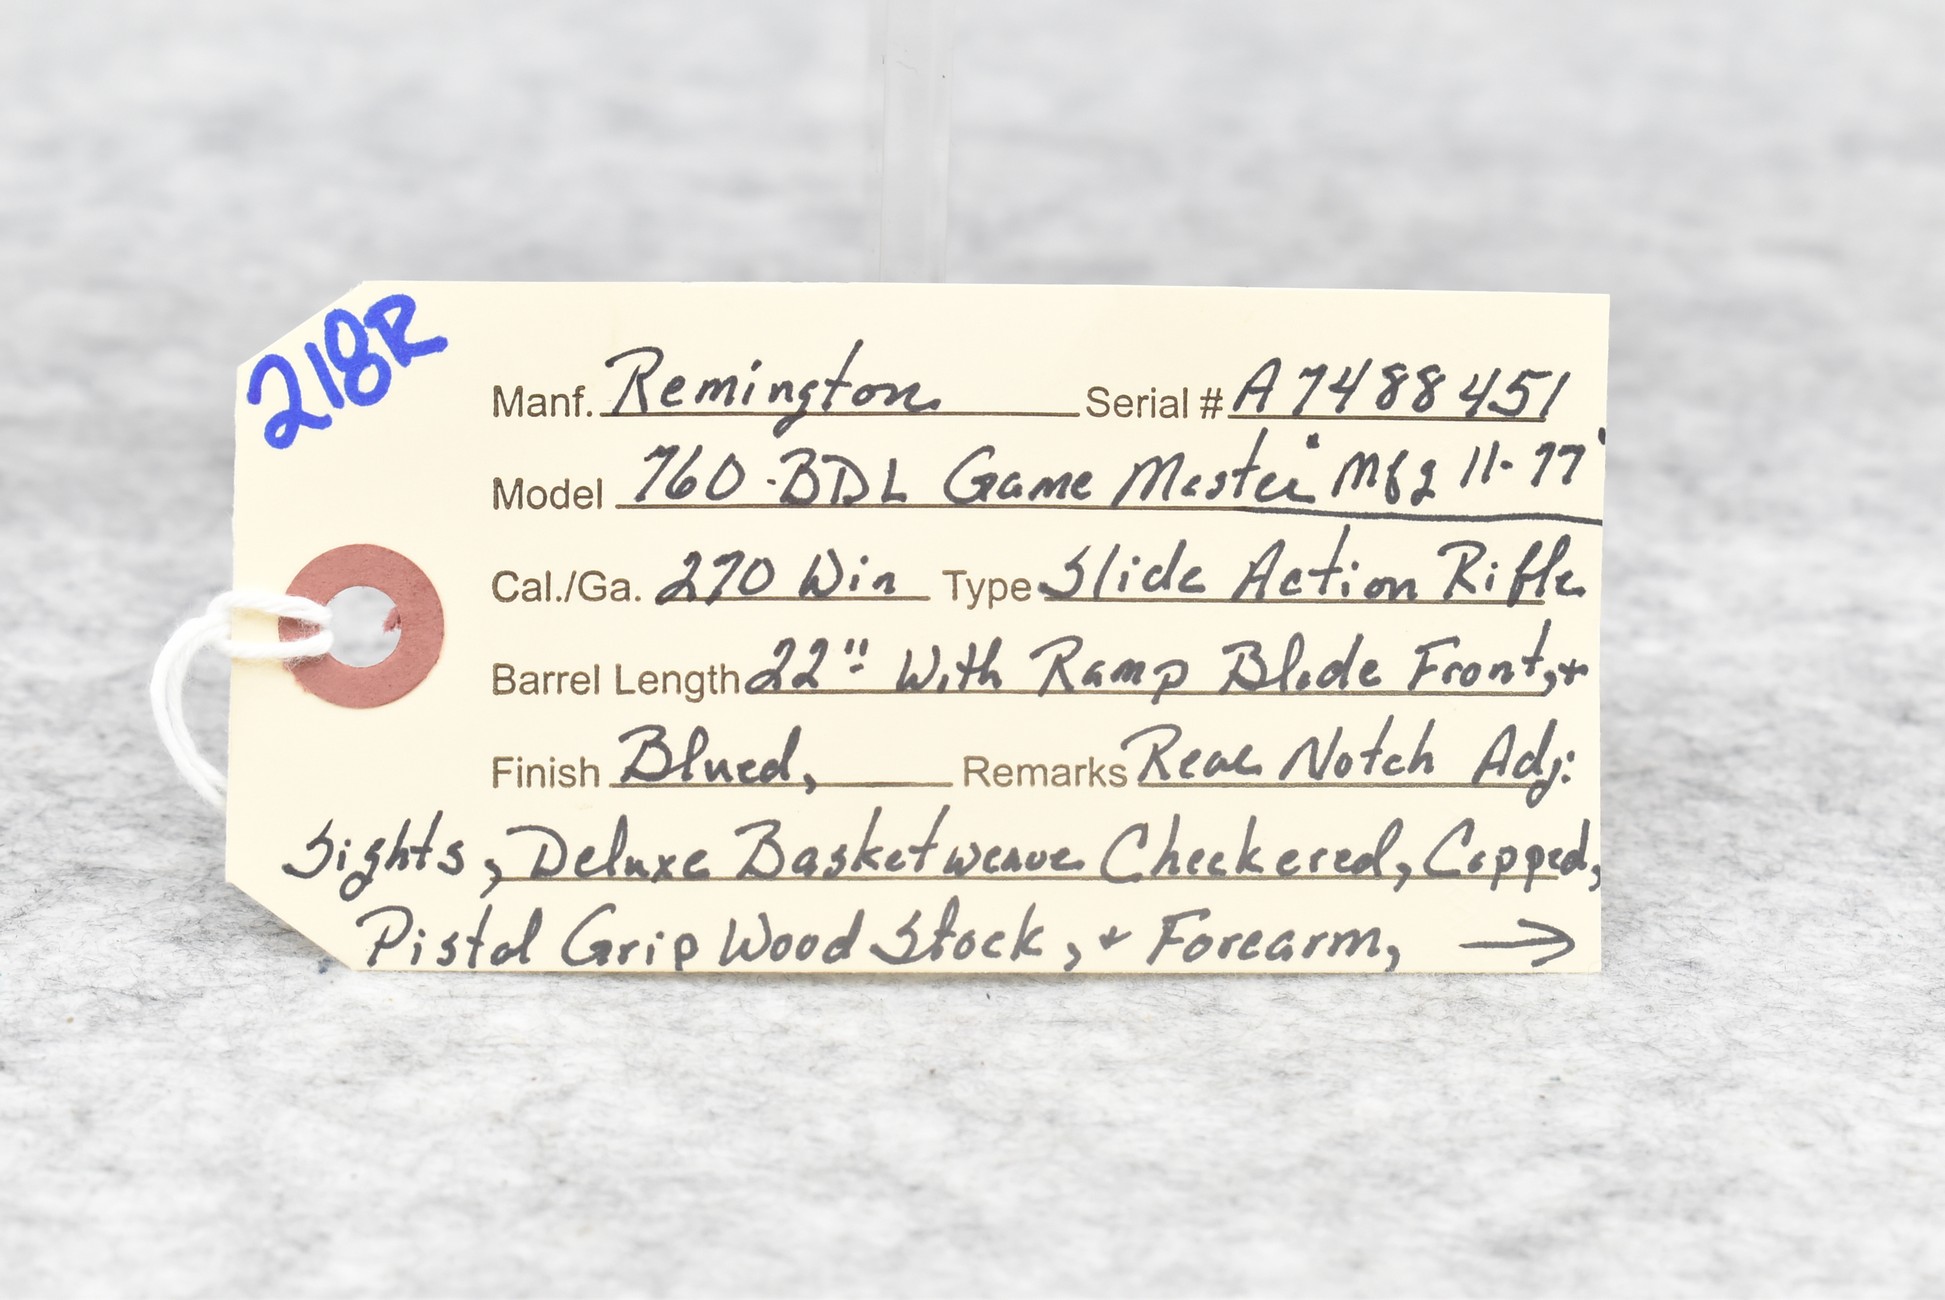 218R
Manf. Remington Serial # A7488451
Model 760-BDL Game Master" Mfg 11-77'
Cal./Ga. 270 Win Type Slide Action Rifle
Barrel Length 22" With Ramp Blade Front, +
Finish Blued, Remarks Rear Notch Adj:
Sights, Deluxe Basketweave Checkered, Capped,
Pistol Grip Wood Stock, + Forearm, →